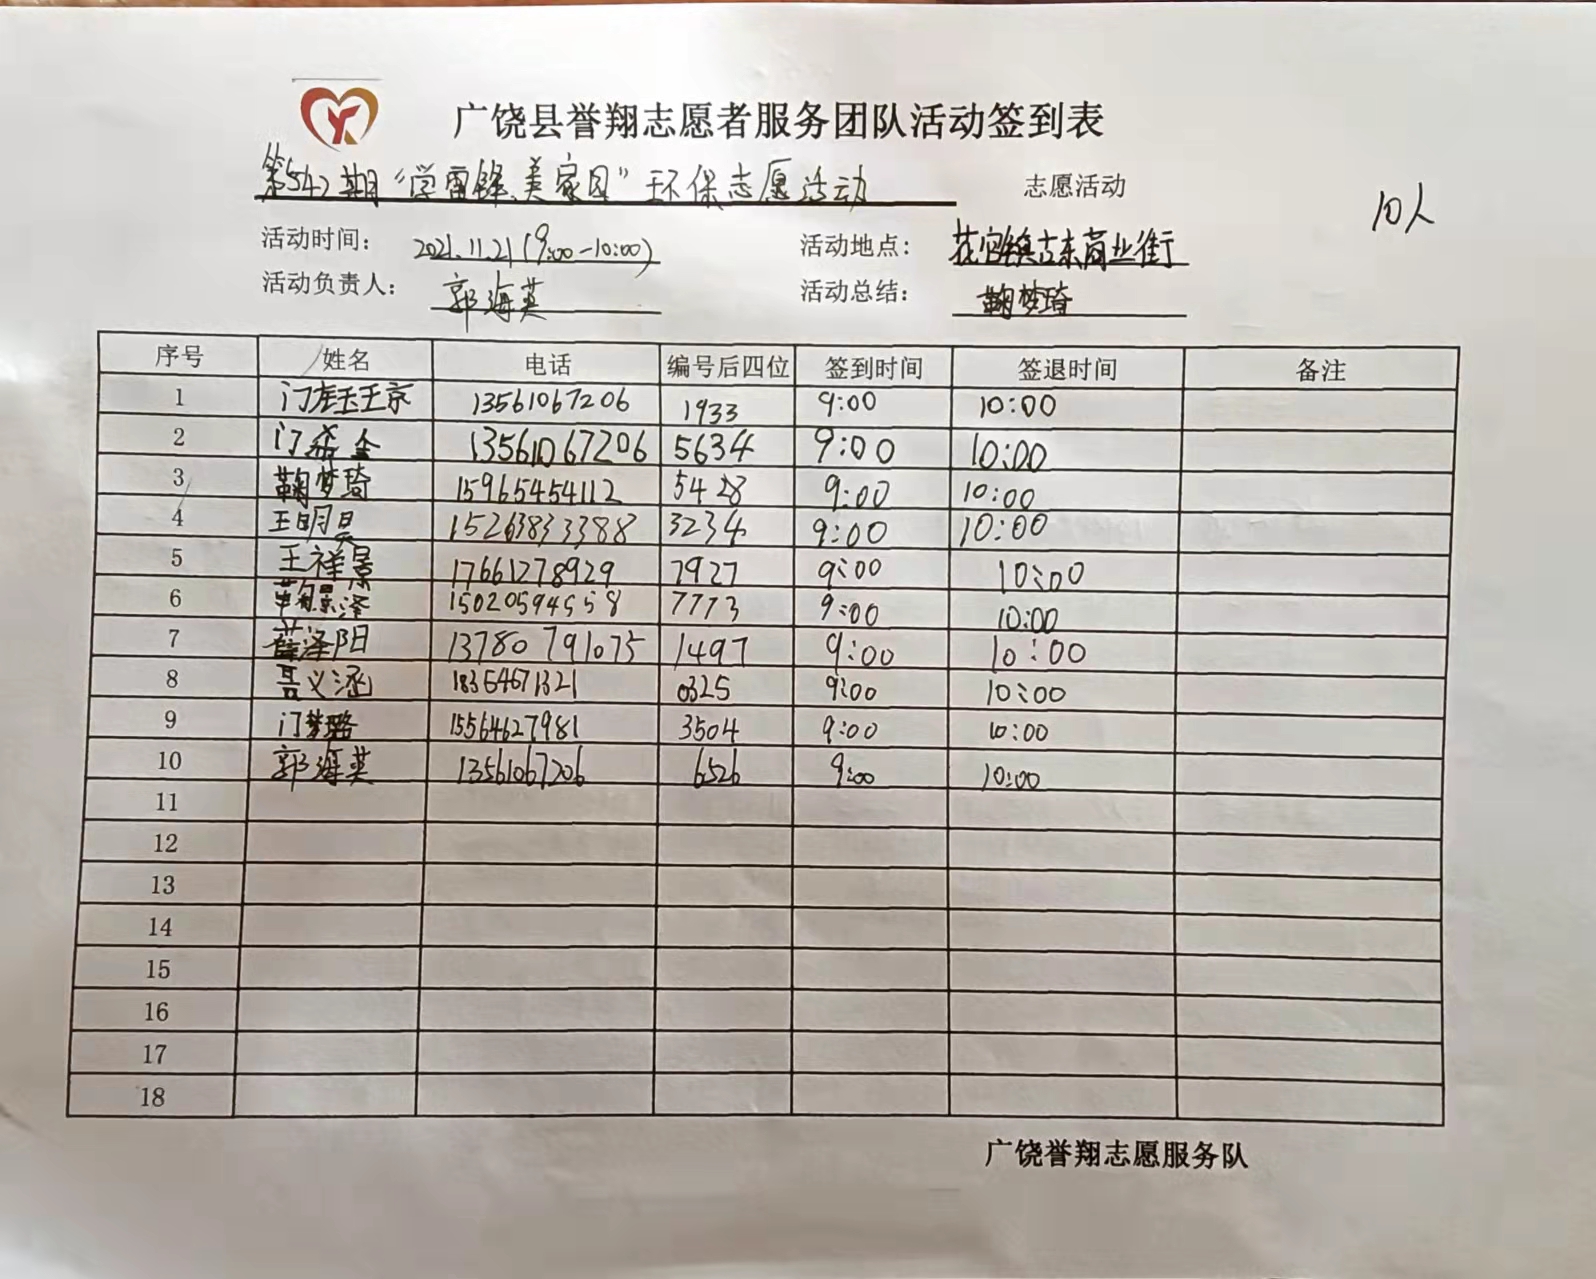 广饶县誉翔志愿者服务团队活动签到表
第542期“学雷锋、美家园”环保志愿活动 志愿活动
10人
活动时间： 2021.11.21(9:00-10:00) 活动地点： 花官镇古东商业街
活动负责人： 郭海英 活动总结： 鞠梦琦
序号 姓名 电话 编号后四位 签到时间 签退时间 备注
1 13561067206 1933 9:00 10:00
2 13561067206 5634 9:00 10:00
3 鞠梦琦 15965454112 5428 9:00 10:00
4 王明昊 15263833388 3234 9:00 10:00
5 王祥景 17661278929 7927 9:00 10:00
6 鞠景泽 15020594558 7773 9:00 10:00
7 薛泽阳 13780791075 1497 9:00 10:00
8 18364671321 0325 9:00 10:00
9 门梦璐 15564627981 3504 9:00 10:00
10 郭海英 13561067206 6526 9:00 10:00
11
12
13
14
15
16
17
18
广饶誉翔志愿服务队